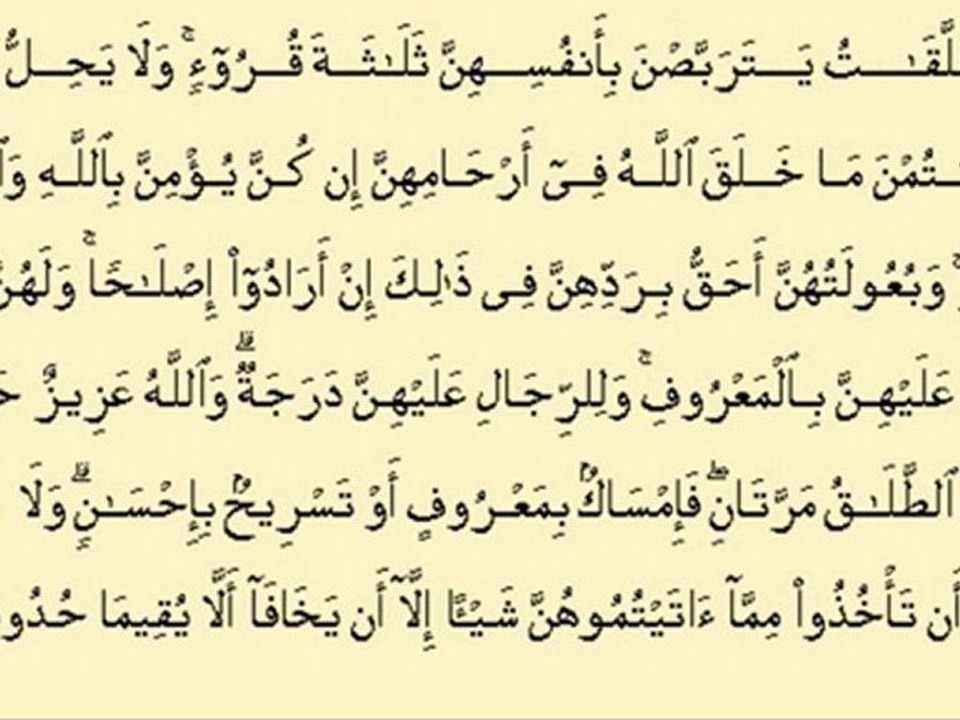 لَّقَـٰتُ يَتَرَبَّصْنَ بِأَنفُسِهِنَّ ثَلَـٰثَةَ قُرُوٓءٍ ۚ وَلَا يَحِلُّ
ـتُمْنَ مَا خَلَقَ ٱللَّهُ فِىٓ أَرْحَامِهِنَّ إِن كُنَّ يُؤْمِنَّ بِٱللَّهِ وَٱ
وَبُعُولَتُهُنَّ أَحَقُّ بِرَدِّهِنَّ فِى ذَٰلِكَ إِنْ أَرَادُوٓا۟ إِصْلَـٰحًا ۚ وَلَهُنَّ
عَلَيْهِنَّ بِٱلْمَعْرُوفِ ۚ وَلِلرِّجَالِ عَلَيْهِنَّ دَرَجَةٌ ۗ وَٱللَّهُ عَزِيزٌ حَ
ٱلطَّلَـٰقُ مَرَّتَانِ ۖ فَإِمْسَاكٌۢ بِمَعْرُوفٍ أَوْ تَسْرِيحٌۢ بِإِحْسَـٰنٍ ۗ وَلَا
أَن تَأْخُذُوا۟ مِمَّآ ءَاتَيْتُمُوهُنَّ شَيْـًٔا إِلَّآ أَن يَخَافَآ أَلَّا يُقِيمَا حُدُو